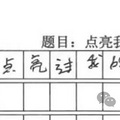 题目：点亮我
点亮过我的